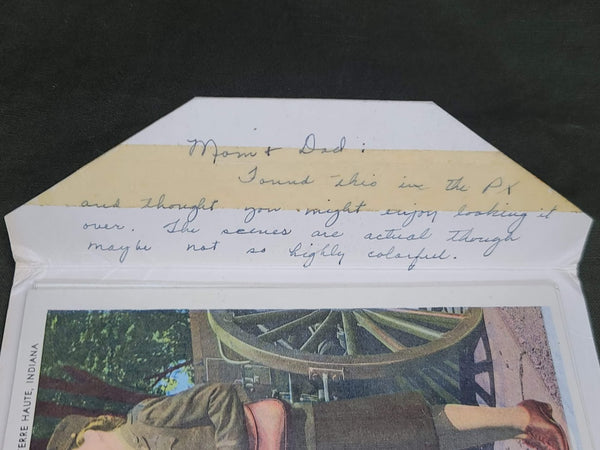 Mom & Dad:
Found this in the PX
and thought you might enjoy looking it
over. The scenes are actual though
maybe not so highly colorful.
ERRE HAUTE, INDIANA